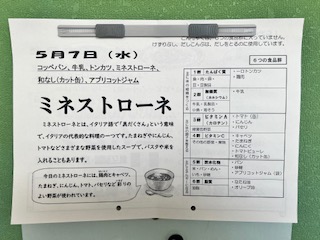 けずりぶし、だしこんぶは、だしをとるのに使用しています。
5月7日(水)
コッペパン、牛乳、トンカツ、ミネストローネ、
和なし(カット缶)、アプリコットジャム
ミネストローネ
ミネストローネとは、イタリア語で「具だくさん」という意味
で、イタリアの代表的な料理の一つです。たまねぎやにんじん、
トマトなどさまざまな野菜を使用したスープで、パスタや米を
入れることもあります。
今日のミネストローネには、鶏肉とキャベツ、
たまねぎ、にんじん、トマト、パセリなど彩りの
よい野菜が使われています。
6つの食品群
1群 たんぱく質
・トンカツ
・鶏肉
2群 無機質
・牛乳
3群 ビタミンA
・トマト(缶)
・にんじん
・パセリ
4群 ビタミンC
・キャベツ
・たまねぎ
・にんにく
・トマトピューレ
・和なし(カット缶)
5群 炭水化物
・パン
・砂糖
・アプリコットジャム
6群 脂質
・オリーブ油